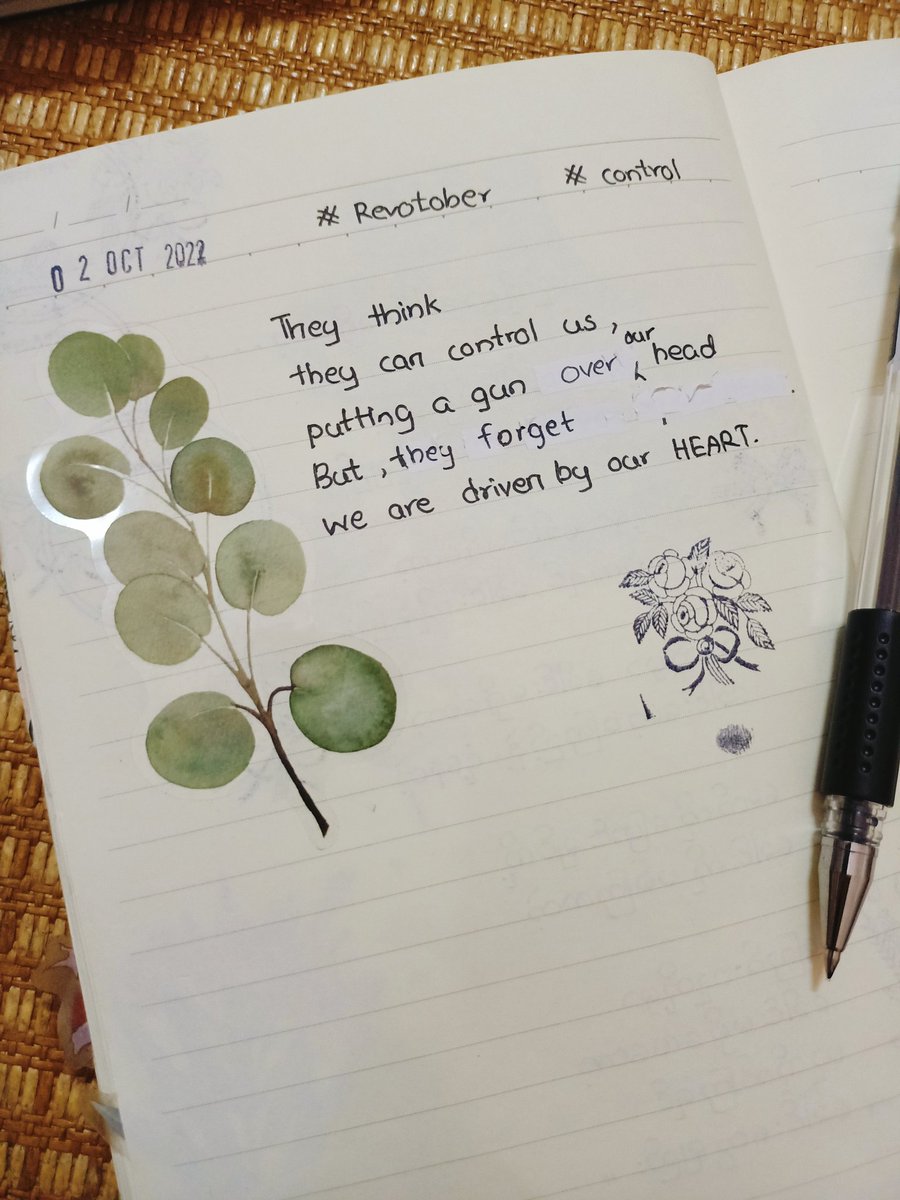 # Revotober # control
02 OCT 2022
They think
they can control us,
putting a gun over our head
But, they forget
we are driven by our HEART.